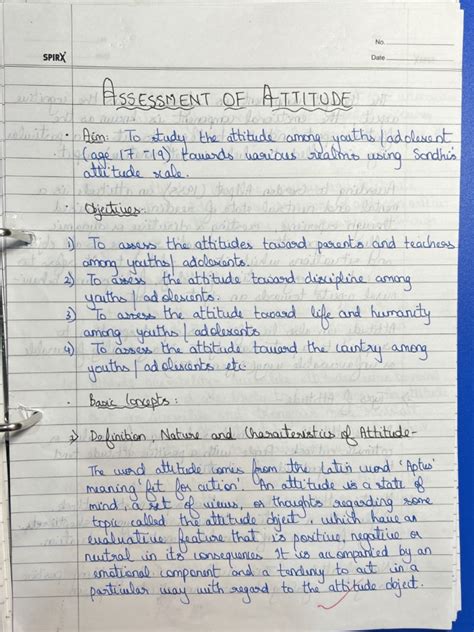 No.
SPIRX
Date
ASSESSMENT OF ATTITUDE
· Aim: To study the attitude among youths/adolescent
(age 17-19) towards various realms using Sondhi's
attitude scale.
· Objectives-
1) To assess the attitudes toward parents and teachers
among youths/adolescents.
2) To assess the attitude toward discipline among
youths/adolescents.
3) To assess the attitude toward life and humanity
among youths/adolescents
4) To assess the attitude toward the country among
youths/adolescents etc.
· Basic Concepts:
Definition, Nature and Charateristics of Attitude-
The word attitude comes from the Latin word 'Aptus'
meaning 'fit for action'. An attitude is a state of
mind, a set of views, or thoughts regarding some
topic called the attitude object, which have an
evaluative feature that is positive, negative or
nutral in its consequences. It is accompanied by an
emotional component and a tendency to act in a
particular way with regard to the attitude object.